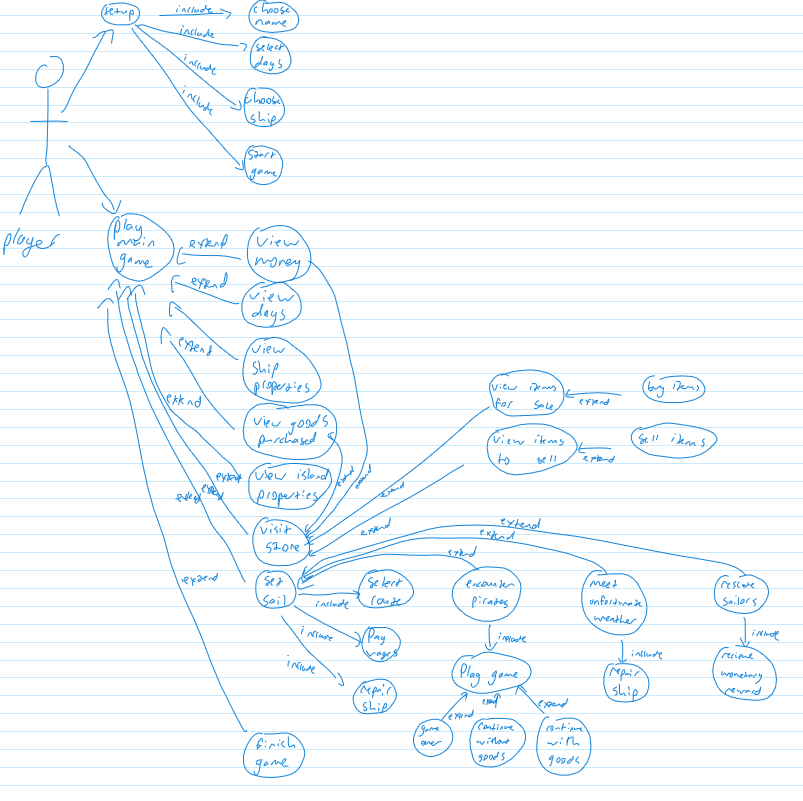 setup
include
choose
name
include
select
days
include
choose
ship
include
start
game
player
play
main
game
extend
view
money
extend
view
days
extend
view
ship
properties
extend
view goods
purchased
extend
view island
properties
extend
extend
visit
store
extend
extend
extend
view items
for sale
extend
buy items
extend
view items
to sell
extend
sell items
extend
set
sail
include
select
route
include
pay
wages
include
repair
ship
extend
encounter
pirates
include
play game
extend
game
over
extend
continue
without
goods
extend
continue
with
goods
extend
meet
unfortunate
weather
include
repair
ship
extend
rescue
sailors
include
recieve
monetary
reward
extend
finish
game